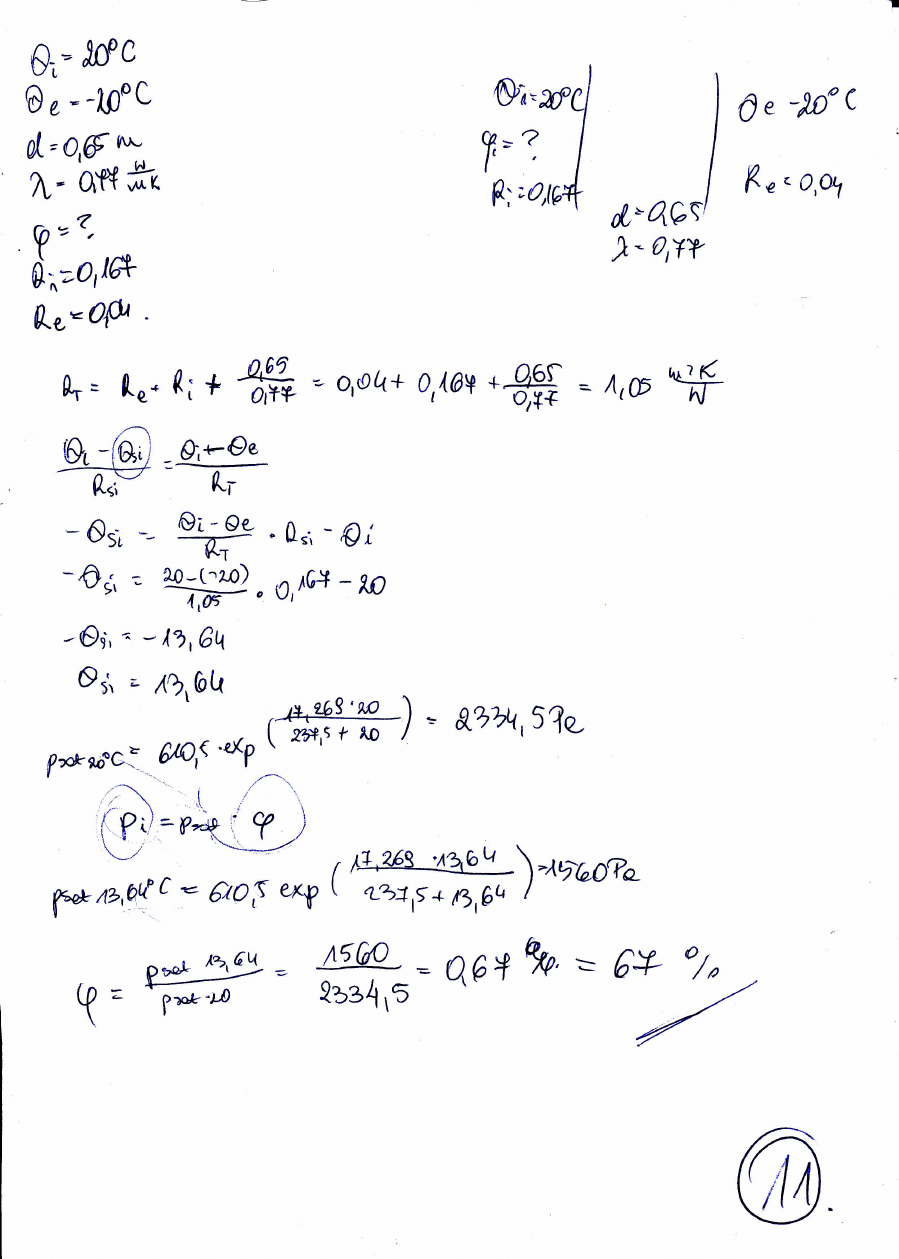 Θi = 20°C
Θe = -20°C
d = 0,65 m
λ = 0,77 W/mK
φ = ?
Ri = 0,167
Re = 0,04.
Θi = 20°C
φi = ?
Ri = 0,167
d = 0,65
λ = 0,77
Θe -20°C
Re = 0,04
RT = Re + Ri + 0,65/0,77 = 0,04 + 0,167 + 0,65/0,77 = 1,05 m²K/W
(Θi - Θsi)/Rsi = (Θi - Θe)/RT
-Θsi = (Θi - Θe)/RT · Rsi - Θi
-Θsi = (20-(-20))/1,05 · 0,167 - 20
-Θsi = -13,64
Θsi = 13,64
psat 20°C = 610,5 · exp (17,269 · 20 / 237,5 + 20) = 2334,5 Pa
pi = psat · φ
psat 13,64°C = 610,5 exp (17,269 · 13,64 / 237,5 + 13,64) = 1560 Pa
φ = psat 13,64 / psat 20 = 1560/2334,5 = 0,67 = 67 %
11.